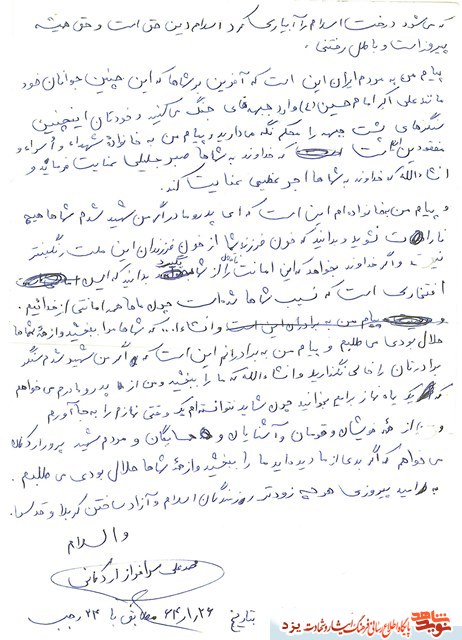 که می شود درخت اسلام را آبیاری کرد اسلام دین حق است و حق همیشه
پیروز است و باطل رفتنی.
پیام من به مردم ایران این است که آفرین بر شما که این چنین جوانان خود
مانند علی اکبر امام حسین (ع) وارد جبهه های جنگ می کنید و خودتان اینچنین
سنگرهای پشت جبهه را محکم نگه می دارید و پیام من به خانواده شهداء و اسراء و
مفقودین این است که خداوند به شماها صبر جلیلی عنایت فرماید و
انشاءالله که خداوند به شماها اجر عظیمی عنایت کند.
و پیام من بخانواده ام این است که ای پدر و مادر اگر من شهید شدم شماها هیچ
ناراحت نشوید و بدانید که خون فرزند شما از خون فرزندان این ملت رنگینتر
نیست و اگر خداوند بخواهد که این امانت را از شما بگیرد بدانید که این
افتخاری است که نصیب شماها شده است چون ماها همه امانتی از خدائیم.
و پیام من به برادران این است و انشاءا... که شماها مرا ببخشید و از همۀ شماها
حلال بودی می طلبم و پیام من به برادرانم این است که اگر من شهید شدم سنگر
برادرتان را خالی نگذارید و انشاءالله که ما را ببخشید و من از پدر و مادرم می خواهم
که یک ماه نماز برایم بخوانید چون شاید نتوانسته ام یک وقتی نمازم را به جا آورم
و از همۀ خویشان و قومان و آشنایان و همسایگان و مردم شهید پرور اردکان
می خواهم که اگر بدی از ما دیده اید ما را ببخشید و از همۀ شماها حلال بودی می طلبم.
به امید پیروزی هر چه زودتر رزمندگان اسلام و آزاد ساختن کربلا و قدس
والسلام
محمد علی سرافراز اردکانی
بتاریخ ۶۴/۱/۲۶ مطابق با ۲۴ رجب
نوید شاهد
پایگاه اطلاع رسانی فرهنگ ایثار و شهادت یزد